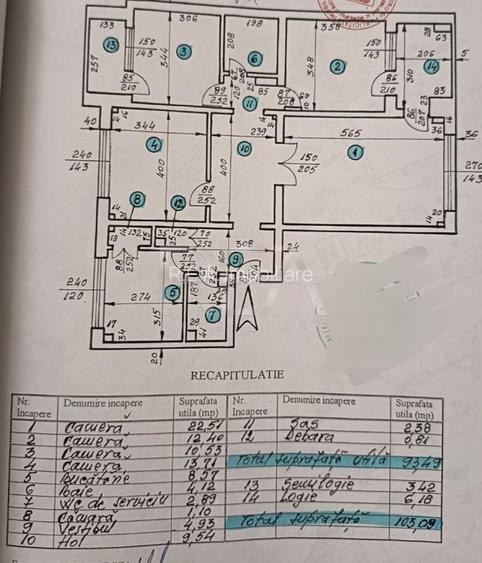 133
306
198
358
28
63
13
150
143
344
3
208
6
348
2
150
143
206
14
5
257
85
210
89
252
120
11
85
87
208
86
210
310
23
83
40
16
344
4
239
10
565
1
86
207
36
36
240
143
400
400
150
205
270
143
88
252
14
8
12
14
20
13
132
35
120
25
70
252
308
24
9
88
252
77
240
120
274
5
187
7
136
315
17
34
28
41
20
RECAPITULATIE
Nr. Incapere Denumire incapere Suprafata utila (mp) Nr. Incapere Denumire incapere Suprafata utila (mp)
1 Camera 22,51 11 Sas 2,38
2 Camera 12,40 12 Debara 0,81
3 Camera 10,53
4 Camera 13,71 Total suprafată utilă 93,49
5 Bucatărie 8,57
6 Baie 4,12 13 Semilogie 3,42
7 WC de serviciu 2,89 14 Logie 6,18
8 Cămară 1,10
9 Vestibul 4,93 Total suprafată 103,09
10 Hol 9,54